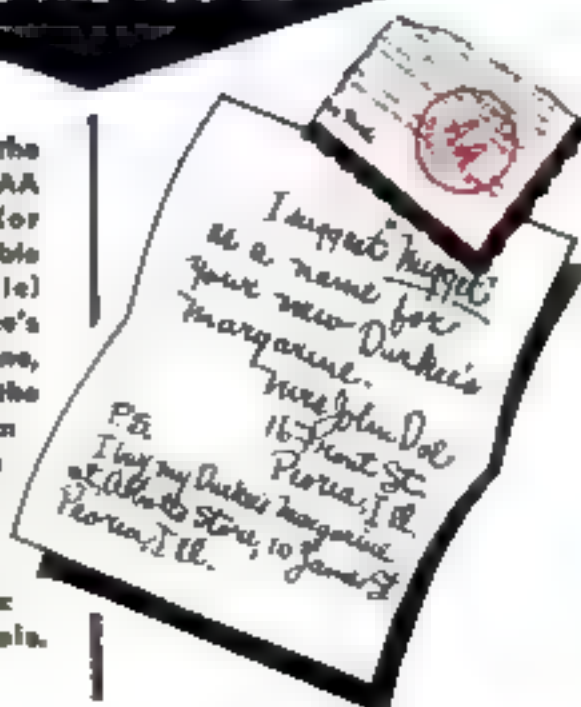 the
AA
(or
ble
le)
e's
ne,
the
ple.
I suggest "Nugget"
as a name for
your new Durkee's
Margarine.
Mrs John Doe
16 Front St
Peoria, Ill.
P.S.
I buy my Durkee's Margarine
at Store, 10 James St
Peoria, Ill.